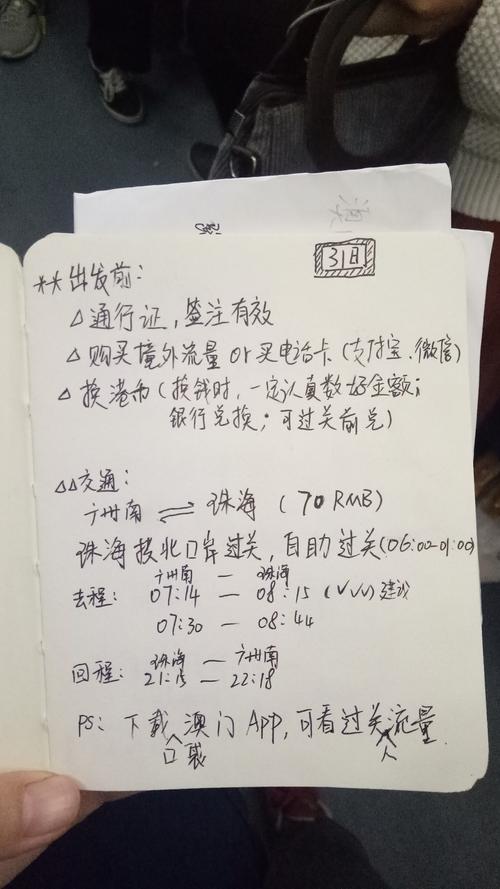 31日
**出发前:
△通行证,签注有效
△购买境外流量 or 买电话卡(支付宝、微信)
△换港币(换钱时,一定认真数好金额;
银行兑换;可过关前兑)
△△交通:
广州南 ⇌ 珠海 (70 RMB)
珠海拱北口岸过关,自助过关(06:00-01:00)
广州南 — 珠海
去程: 07:14 — 08:15 (VVV) 建议
07:30 — 08:44
珠海 — 广州南
回程: 21:15 — 22:18
PS: 下载口袋澳门App,可看过关人流量.